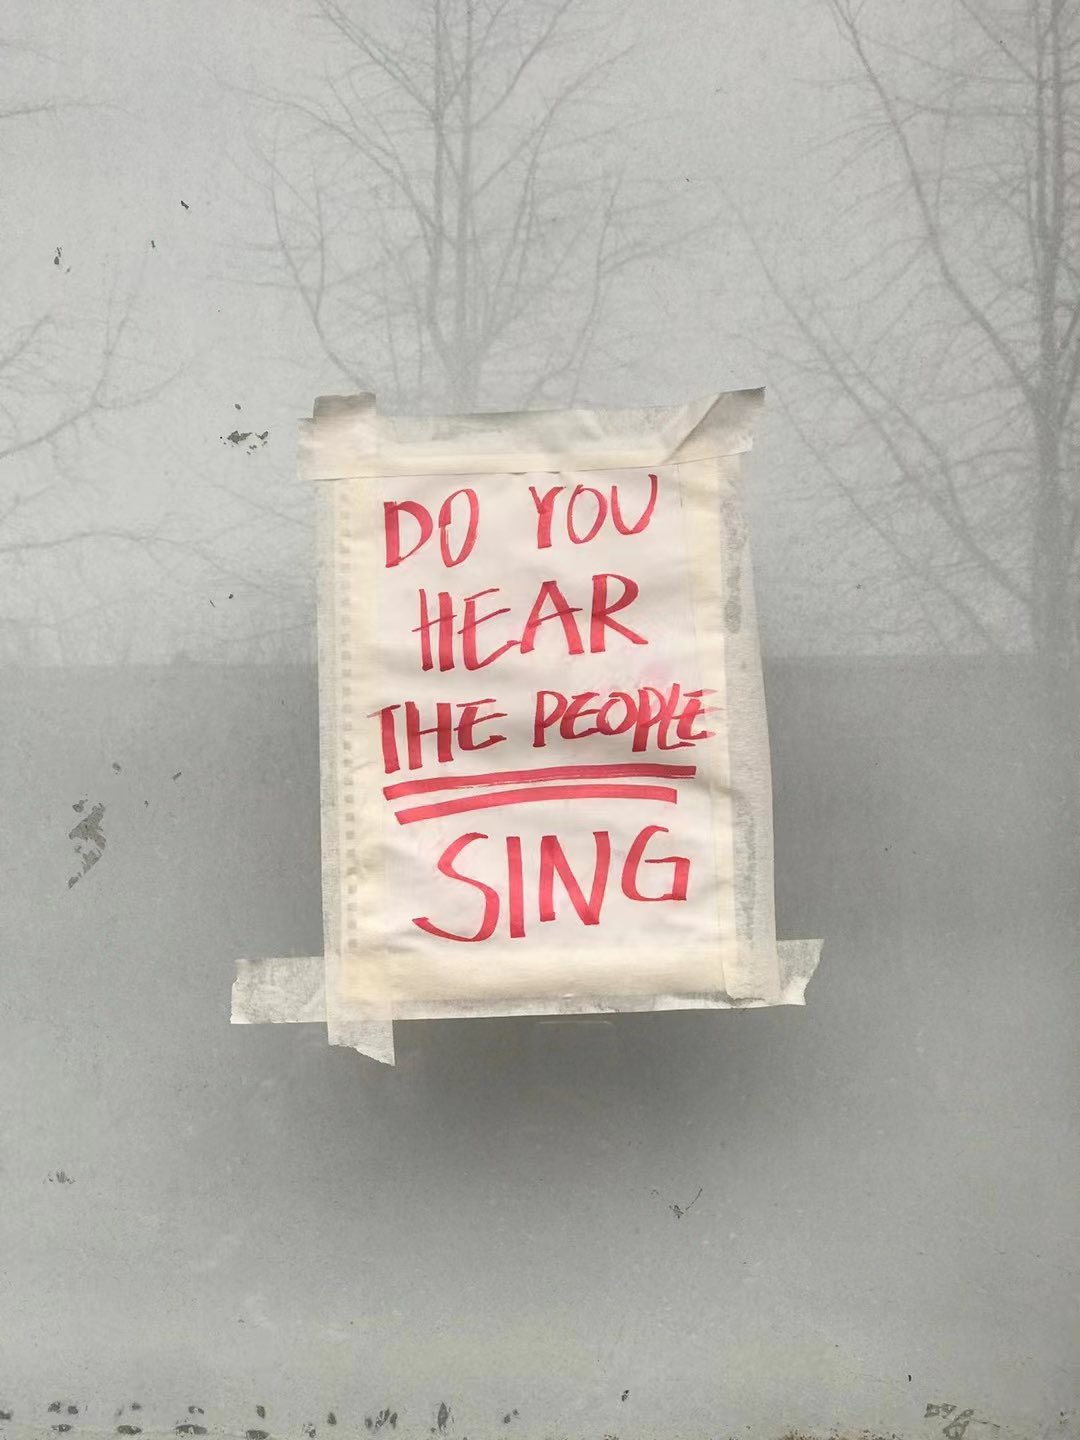 DO YOU
HEAR
THE PEOPLE
SING